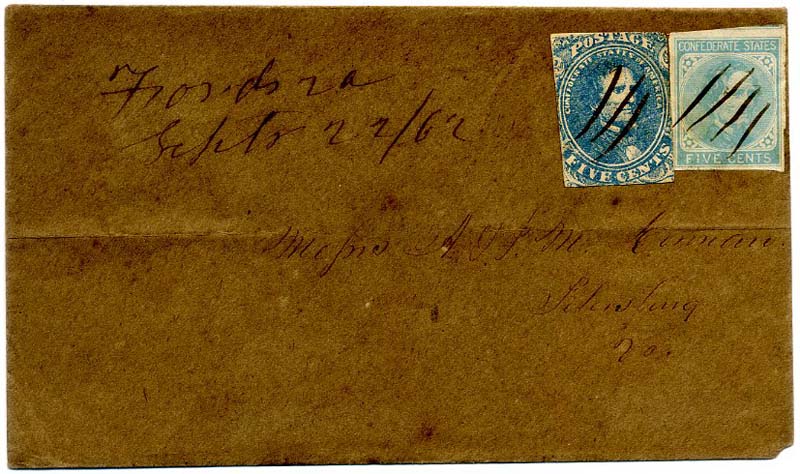 POSTAGE
CONFEDERATE STATES OF AMERICA
FIVE CENTS
CONFEDERATE STATES
FIVE CENTS
Septr 22/62
Messrs A & M.
Va.